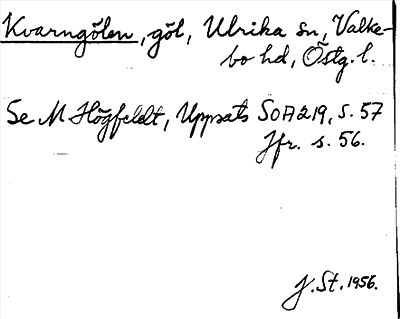 Kvarngölen, göl, Ulrika sn, Valke-
bo hd, Östg. l.
Se M Högfeldt, Uppsats SOA 219, s. 57
Jfr. s. 56.
J. St. 1956.